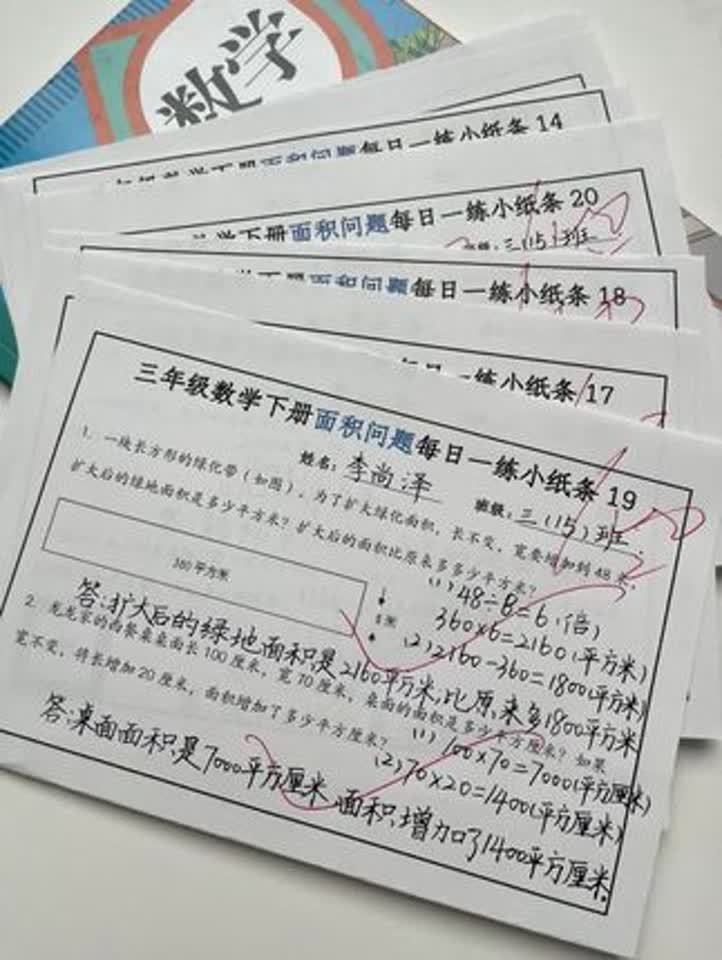 数学
每日一练小纸条 14
面积问题每日一练小纸条 20
三(15)班
每日一练小纸条 18
每日一练小纸条 17
三年级数学下册面积问题每日一练小纸条 19
姓名：李尚泽 班级：三(15)班
1. 一块长方形的绿化带（如图），为了扩大绿化面积，长不变，宽要增加到 48 米，
扩大后的绿地面积是多少平方米？扩大后的面积比原来多多少平方米？
360 平方米
8 米
(1) 48÷8=6(倍)
360×6=2160(平方米)
(2) 2160-360=1800(平方米)
答:扩大后的绿地面积是2160平方米,比原来多1800平方米
2. 龙龙家的西餐桌桌面长 100 厘米，宽 70 厘米，桌面的面积是多少平方厘米？如果
宽不变，将长增加 20 厘米，面积增加了多少平方厘米？
(1) 100×70=7000(平方厘米)
(2) 70×20=1400(平方厘米)
答:桌面面积是7000平方厘米 面积增加了1400平方厘米.